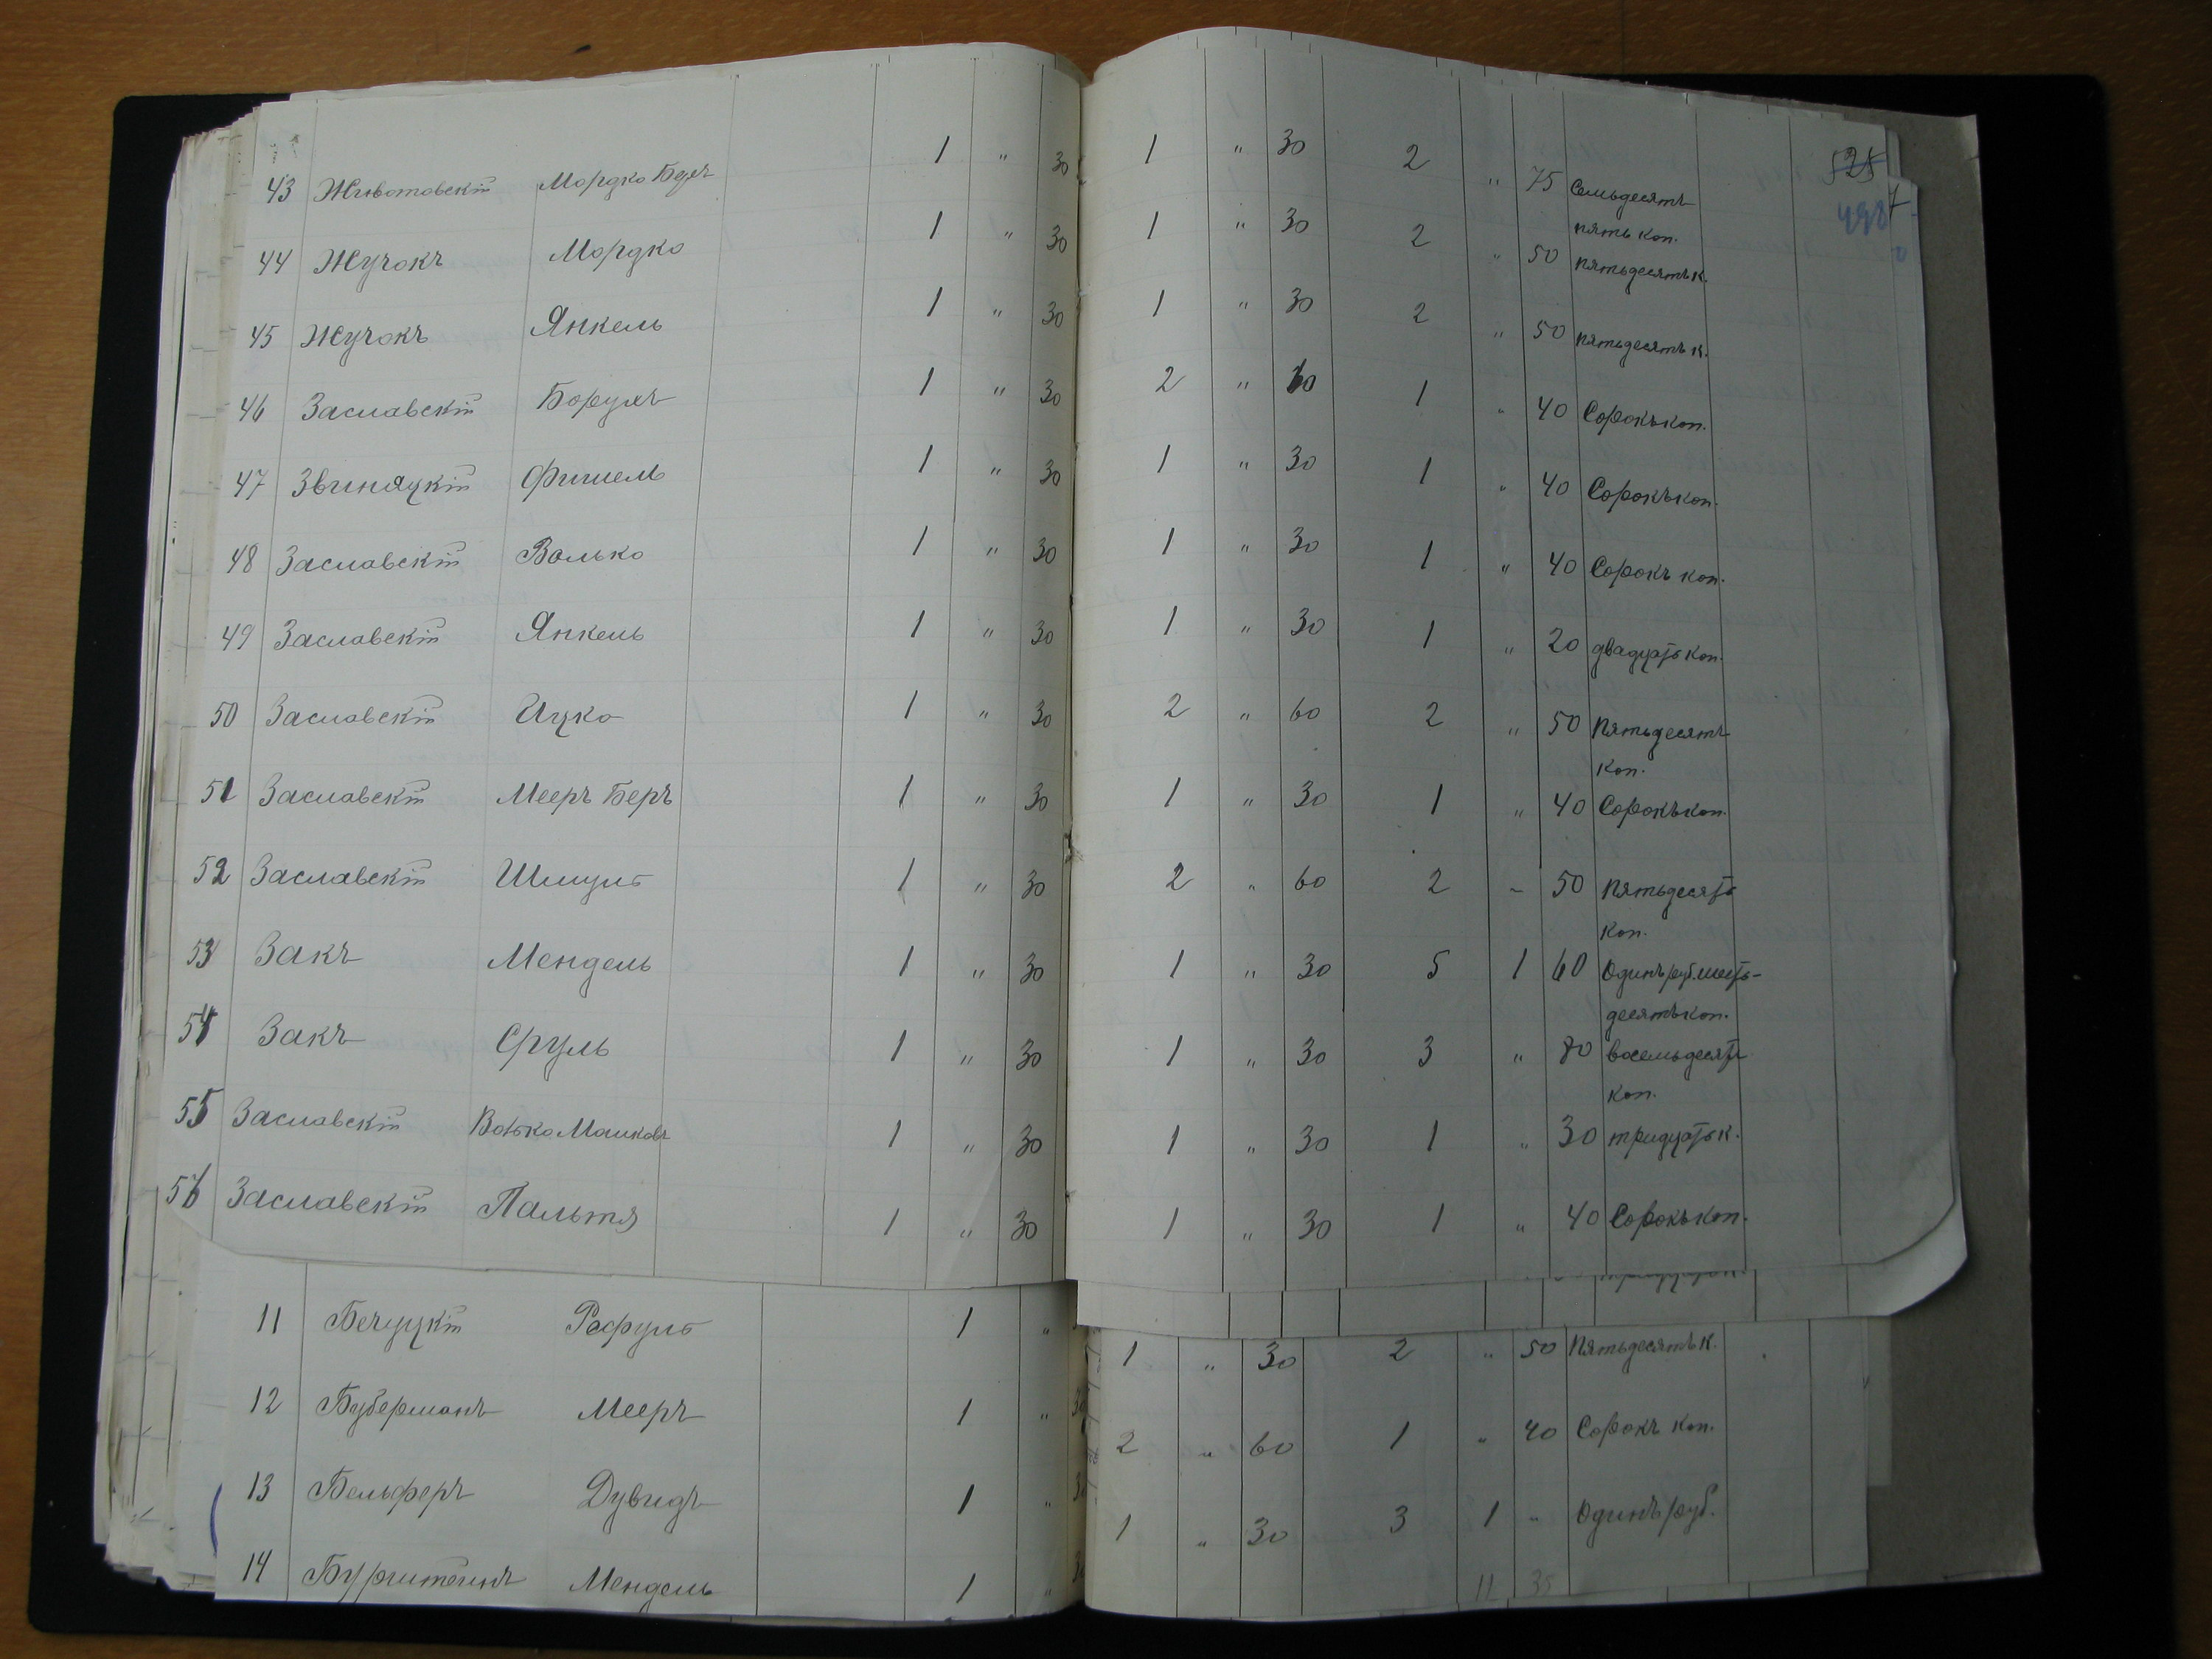 525
498
43 Животовскій Мордко Беръ 1 " 30 1 " 30 2 " 75 Семьдесятъ
пять коп.
44 Жучокъ Мордко 1 " 30 1 " 30 2 " 50 пятьдесятъ к.
45 Жучокъ Янкель 1 " 30 1 " 30 2 " 50 пятьдесятъ к.
46 Заславскій Борухъ 1 " 30 2 " 60 1 " 40 Сорокъ коп.
47 Звиняцкій Фишель 1 " 30 1 " 30 1 " 40 Сорокъ коп.
48 Заславскій Волько 1 " 30 1 " 30 1 " 40 Сорокъ коп.
49 Заславскій Янкель 1 " 30 1 " 30 1 " 20 двадцать коп.
50 Заславскій Ицко 1 " 30 2 " 60 2 " 50 Пятьдесятъ
коп.
51 Заславскій Мееръ Беръ 1 " 30 1 " 30 1 " 40 Сорокъ коп.
52 Заславскій Шмуль 1 " 30 2 " 60 2 " 50 пятьдесятъ
коп.
53 Закъ Мендель 1 " 30 1 " 30 5 1 60 Одинъ руб. шесть-
десятъ коп.
54 Закъ Сруль 1 " 30 1 " 30 3 " 80 восемьдесятъ
коп.
55 Заславскій Волько Машковъ 1 " 30 1 " 30 1 " 30 тридцать к.
56 Заславскій Пальтя 1 " 30 1 " 30 1 " 40 Сорокъ коп.
11 Бечуцкій Рафуль 1 " 1 " 30 2 " 50 Пятьдесятъ к.
12 Буберманъ Мееръ 1 " 30 2 " 60 1 " 40 Сорокъ коп.
13 Бельферъ Дувидъ 1 " 30 1 " 30 3 1 " Одинъ руб.
14 Бурштеинъ Мендель 1 " 30
11 35